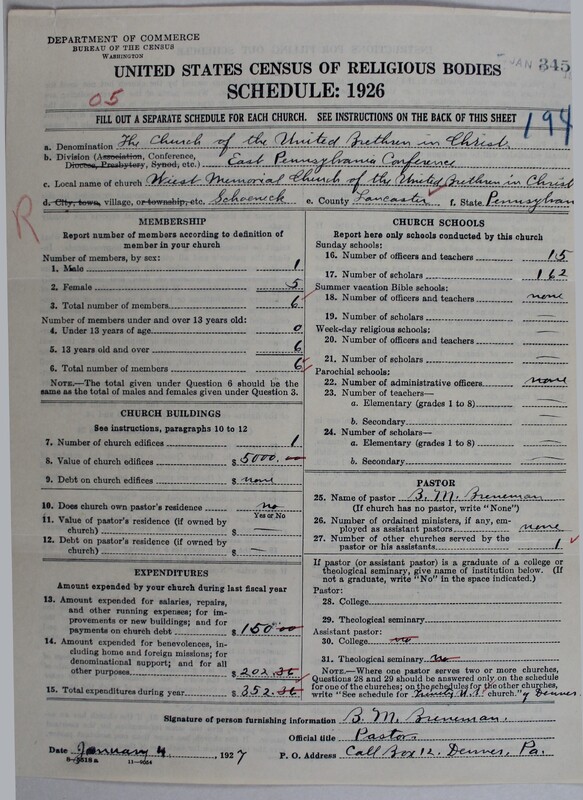 DEPARTMENT OF COMMERCE
BUREAU OF THE CENSUS
WASHINGTON
JAN 345
UNITED STATES CENSUS OF RELIGIOUS BODIES
SCHEDULE: 1926
05
FILL OUT A SEPARATE SCHEDULE FOR EACH CHURCH. SEE INSTRUCTIONS ON THE BACK OF THIS SHEET
194
a. Denomination The Church of the United Brethren in Christ.
b. Division (Association, Conference, Diocese, Presbytery, Synod, etc.) East Pennsylvania Conference
c. Local name of church Wiest Memorial Church of the United Brethren in Christ
d. City, town, village, or township, etc. Schoeneck e. County Lancaster f. State Pennsylvan
R
MEMBERSHIP
Report number of members according to definition of
member in your church
Number of members, by sex:
1. Male 1
2. Female 5
3. Total number of members 6
Number of members under and over 13 years old:
4. Under 13 years of age 0
5. 13 years old and over 6
6. Total number of members 6
NOTE.—The total given under Question 6 should be the
same as the total of males and females given under Question 3.
CHURCH BUILDINGS
See instructions, paragraphs 10 to 12
7. Number of church edifices 1
8. Value of church edifices $ 5000.00
9. Debt on church edifices $ none
10. Does church own pastor's residence no
Yes or No
11. Value of pastor's residence (if owned by
church) $
12. Debt on pastor's residence (if owned by
church) $ —
EXPENDITURES
Amount expended by your church during last fiscal year
13. Amount expended for salaries, repairs,
and other running expenses; for im-
provements or new buildings; and for
payments on church debt $ 150.00
14. Amount expended for benevolences,
including home and foreign missions; for
denominational support; and for all
other purposes $ 202.36
15. Total expenditures during year $ 352.36
CHURCH SCHOOLS
Report here only schools conducted by this church
Sunday schools:
16. Number of officers and teachers 15
17. Number of scholars 162
Summer vacation Bible schools:
18. Number of officers and teachers none
19. Number of scholars —
Week-day religious schools:
20. Number of officers and teachers —
21. Number of scholars —
Parochial schools:
22. Number of administrative officers none
23. Number of teachers—
a. Elementary (grades 1 to 8) —
b. Secondary —
24. Number of scholars—
a. Elementary (grades 1 to 8) —
b. Secondary —
PASTOR
25. Name of pastor B. M. Breneman
(If church has no pastor, write "None")
26. Number of ordained ministers, if any, em-
ployed as assistant pastors none
27. Number of other churches served by the
pastor or his assistants 1
If pastor (or assistant pastor) is a graduate of a college or
theological seminary, give name of institution below. (If
not a graduate, write "No" in the space indicated.)
Pastor:
28. College
29. Theological seminary
Assistant pastor:
30. College no
31. Theological seminary no
NOTE.—Where one pastor serves two or more churches,
Questions 28 and 29 should be answered only on the schedule
for one of the churches; on the schedules for the other churches,
write "See schedule for Trinity U.B. church." of Denver.
Signature of person furnishing information B. M. Breneman.
Official title Pastor.
Date January 4, 1927 P. O. Address Call Box 12. Denver, Pa.
8-5518a 11-9054